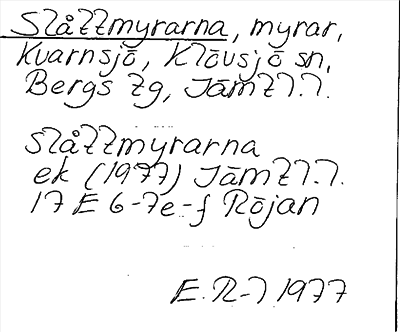 Slåttmyrarna, myrar,
Kvarnsjö, Klövsjö sn,
Bergs tg, Jämtl.
Slåttmyrarna
ek (1977) Jämtl.
17 E 6-7e-f Röjan
E. R-l 1977